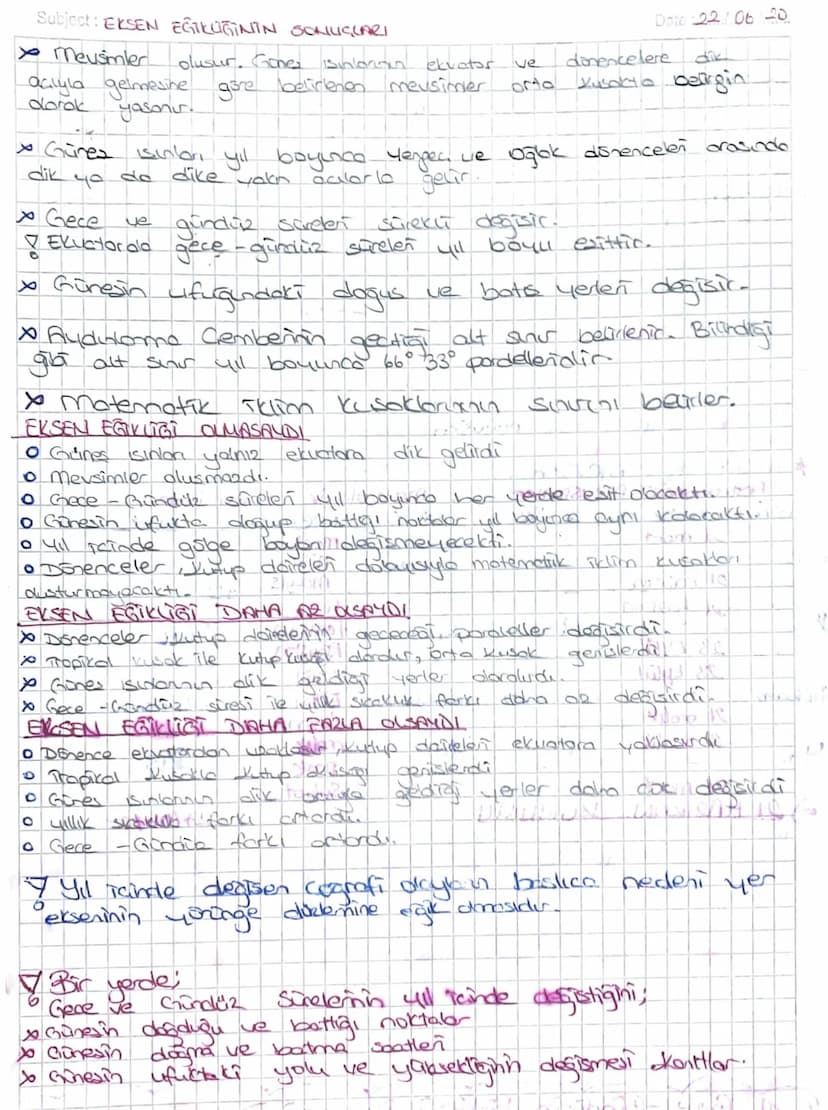 Subject: EKSEN EĞİKLİĞİNİN SONUÇLARI Date: 22/06/20
× Mevsimler oluşur. Güneş ışınlarının ekvator ve dönencelere dik
açıyla gelmesine göre belirlenen mevsimler orta kuşakta belirgin
olarak yaşanır.
× Güneş ışınları yıl boyunca Yengeç ve Oğlak dönenceleri arasında
dik ya da dike yakın açılarla gelir.
× Gece ve gündüz süreleri sürekli değişir.
! Ekvatorda gece-gündüz süreleri yıl boyu eşittir.
× Güneşin ufuğundaki doğuş ve batış yerleri değişir.
× Aydınlanma Çemberinin geçtiği alt sınır belirlenir. Bilindiği
gibi alt sınır yıl boyunca 66° 33° paralelleridir
× Matematik iklim kuşaklarının sınırını belirler.
EKSEN EĞİKLİĞİ OLMASAYDI
o Güneş ışınları yalnız ekvatora dik gelirdi
o Mevsimler oluşmazdı.
o Gece-Gündüz süreleri yıl boyunca her yerde eşit olacaktı.
o Güneşin ufukta doğup battığı noktalar yıl boyunca aynı kalacaktı.
o Yıl içinde gölge boyları değişmeyecekti.
o Dönenceler, kutup daireleri dolayısıyla matematik iklim kuşakları
oluşturmayacaktı.
EKSEN EĞİKLİĞİ DAHA AZ OLSAYDI
× Dönenceler, kutup dairelerinin geçeceği paraleller değişirdi.
× Tropikal kuşak ile kutup kuşağı daralır, orta kuşak genişlerdi
× Güneş ışınlarının dik geldiği yerler daralırdı.
× Gece-Gündüz süresi ile yıllık sıcaklık farkı daha az değişirdi.
EKSEN EĞİKLİĞİ DAHA FAZLA OLSAYDI
o Dönence ekvatordan uzaklaşır, kutup daireleri ekvatora yaklaşırdı
o Tropikal kuşakla kutup kuşağı genişlerdi
o Güneş ışınlarının dik açıyla geldiği yerler daha çok değişirdi
o Yıllık sıcaklık farkı artardı.
o Gece-Gündüz farkı artardı.
! Yıl içinde değişen coğrafi olayların başlıca nedeni yer
ekseninin yörünge düzlemine eğik olmasıdır.
! Bir yerde;
Gece ve Gündüz sürelerinin yıl içinde değiştiğini;
× Güneşin doğduğu ve battığı noktalar
× Güneşin doğma ve batma saatleri
× Güneşin ufuktaki yolu ve yüksekliğinin değişmesi kanıtlar.